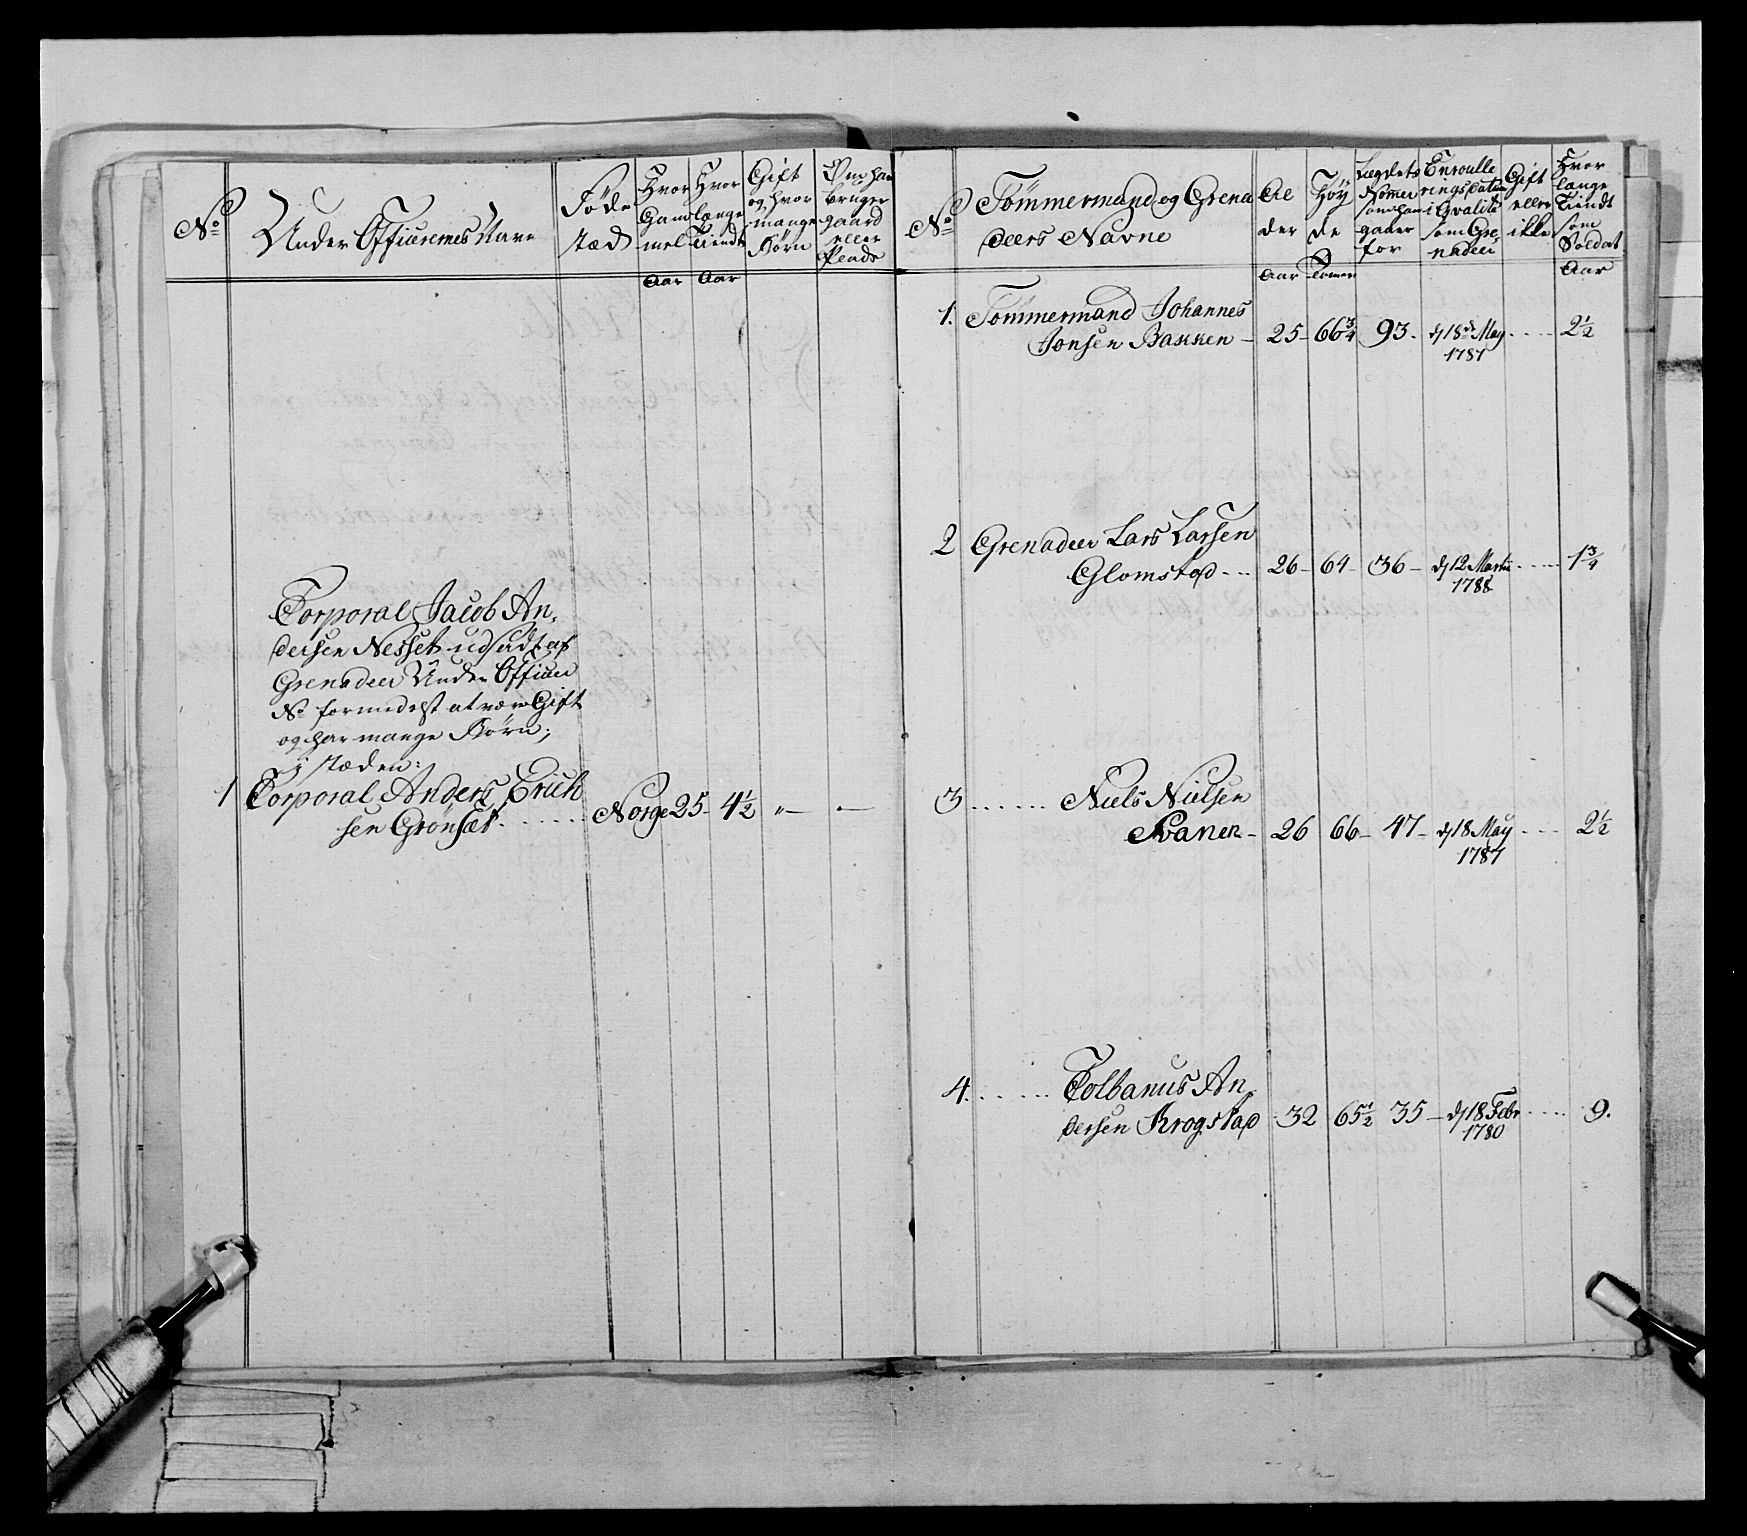 No
Under Officerernes Navn
Føde
stæd
Hvor
Gam
mel
Aar
Hvor
længe
tiendt
Aar
Gift
og hvor
mange
Børn
Om han
bruger
gaard
eller
Plads
Corporal Jacob An,
dersen Nesset udsadt af
Grenadeer Under Officer
No formedelst at være Gift
og har mange Børn;
i stæden:
1 Corporal Anders Erich
sen Grønset. . . . . . . Norge 25- 4½ „— —
No
Tømmermand og Grena
deers Navne
Al
der
Aar
Høy
de
Tomer
Lægdets
Nommer
som han
gaaer
for
Enroulle
rings Datum
i Qvalite
som Gre,
nadeer
Gift
eller
ikke
Hvor
længe
tiendt
som
Soldat
Aar
1. Tømmermand Johannes
Jonsen Bakken - 25- 66¾ 93. d 18de May . . . . 2½
1787
2 Grenadeer Lars Larsen
Glomstad - - - 26- 64- 36- d 12 Martii . . . . . 1¾
1788
3 . . . . . . Niels Nielsen
Svanen - 26 66- 47- d 18 May . . . . 2½
1787
4. . . . . . Colbanus An,
dersen Krogstad 32 65½ 35- d 18 Febr . . . . 9.
1780